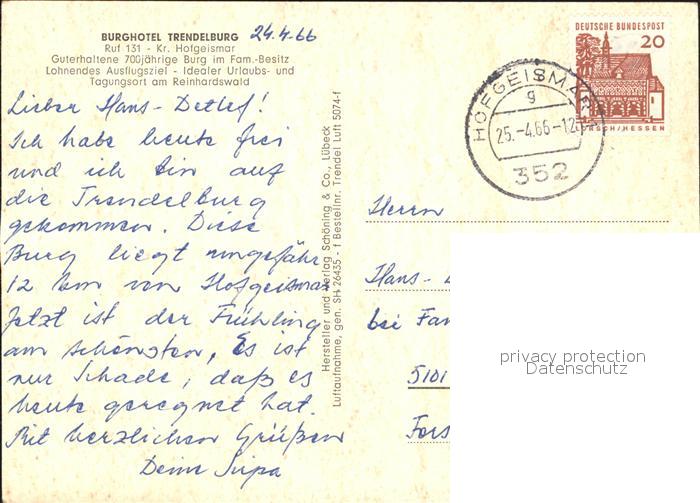 BURGHOTEL TRENDELBURG
24.4.66
Ruf 131 - Kr. Hofgeismar
Guterhaltene 700jährige Burg im Fam.-Besitz
Lohnendes Ausflugsziel - Idealer Urlaubs- und
Tagungsort am Reinhardswald
Lieber Hans-Detlef!
Ich habe heute frei
und ich bin auf
die Trendelburg
gekommen. Diese
Burg liegt ungefähr
12 km von Hofgeismar
Jetzt ist der Frühling
am schönsten, Es ist
nur Schade, daß es
heute geregnet hat.
Mit herzlichen Grüßen
Deine
Hersteller und Verlag Schöning & Co., Lübeck
Luftaufnahme, gen. SH 26435 - f Bestellnr. Trendel Luft 5074-f
DEUTSCHE BUNDESPOST
20
LORSCH/HESSEN
HOFGEISMAR 1
g
25.-4.66-12
352
Herrn
Hans-
bei Fam
5101
Fors
privacy protection
Datenschutz